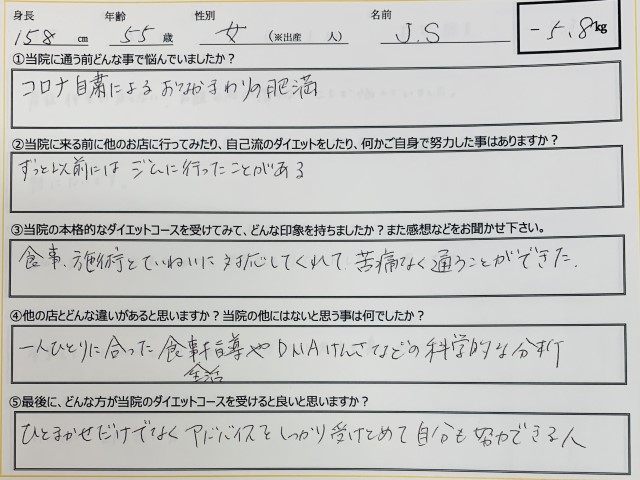 身長 158 cm 年齢 55 歳 性別 女 (※出産 人) 名前 J.S -5.8kg
①当院に通う前どんな事で悩んでいましたか?
コロナ自粛によるおなかまわりの肥満
②当院に来る前に他のお店に行ってみたり、自己流のダイエットをしたり、何かご自身で努力した事はありますか?
ずっと以前にはジムに行ったことがある
③当院の本格的なダイエットコースを受けてみて、どんな印象を持ちましたか?また感想などをお聞かせ下さい。
食事、施術とていねいに対応してくれて、苦痛なく通うことができた。
④他の店とどんな違いがあると思いますか?当院の他にはないと思う事は何でしたか?
一人ひとりに合った食事指導やDNAけんさなどの科学的な分析
生活
⑤最後に、どんな方が当院のダイエットコースを受けると良いと思いますか?
ひとまかせだけでなくアドバイスをしっかり受けとめて自分も努力できる人